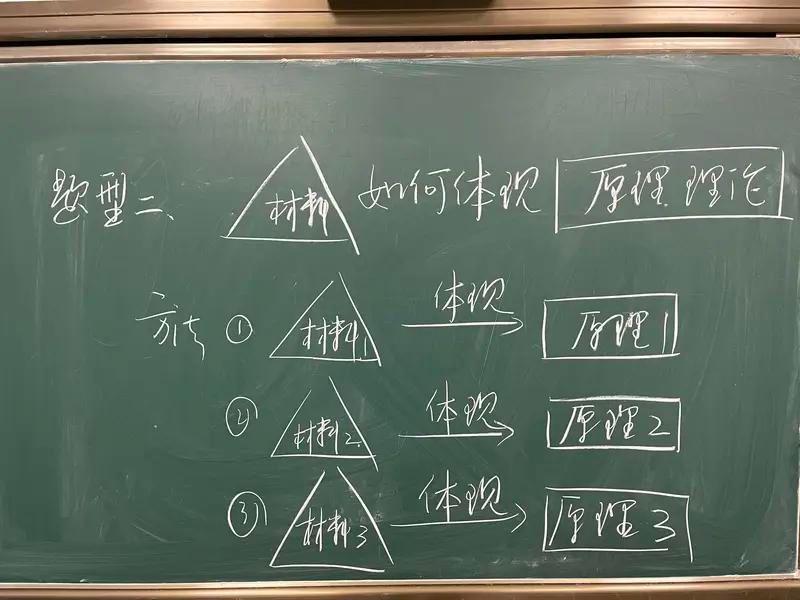 题型二、 材料 如何体现 原理.理论
方法 ① 材料1 体现 原理1
② 材料2 体现 原理2
③ 材料3 体现 原理3